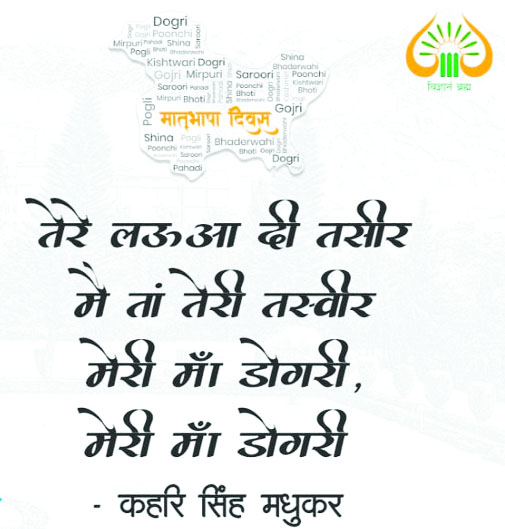 Dogri
Pogli Pahadi Poonchi
Gojri
Mirpuri Pahadi Shina
Pogli Bhoti
Saroori
Bhaderwahi
Kishtwari Dogri
Shina
Bhaderwahi
Gojri Mirpuri Saroori Poonchi
Kishtwari
Saroori Pahadi Bhoti
Mirpuri Bhoti
Pogli
Gojri
मातृभाषा दिवस
Shina Bhaderwahi
Poonchi Bhoti
Saroori
Dogri
Pahadi
विज्ञानं ब्रह्म
तेरे लऊआ दी तसीर
मै तां तेरी तस्वीर
मेरी माँ डोगरी,
मेरी माँ डोगरी
- कहरि सिंह मधुकर